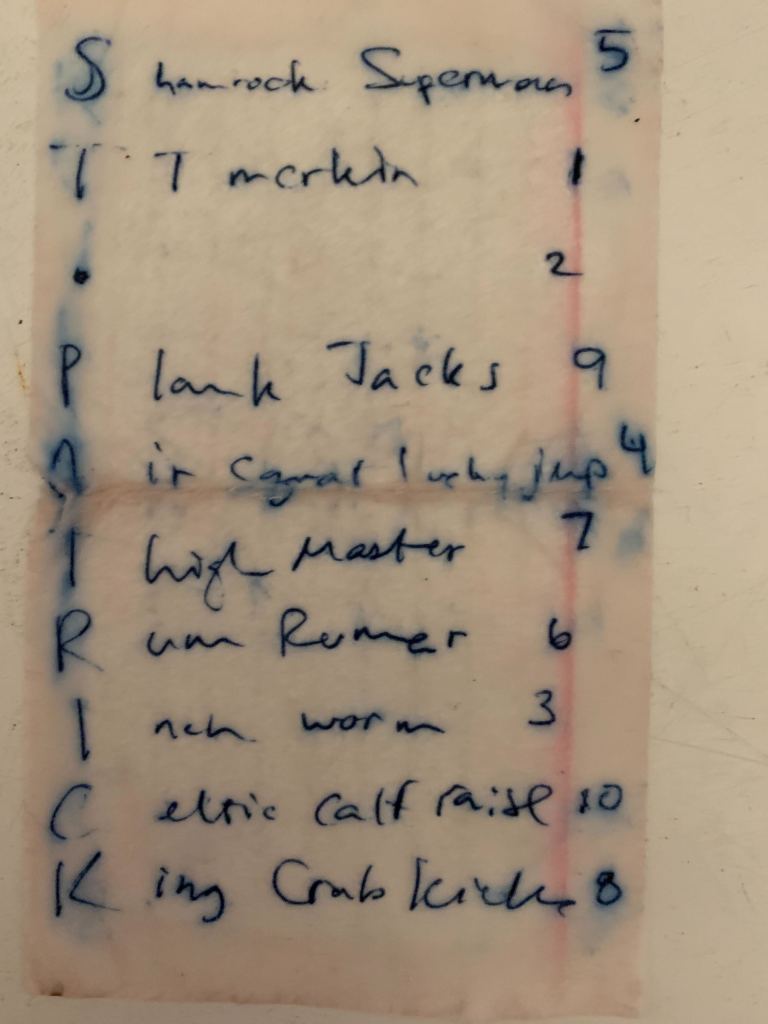 S hamrock Supermans 5
T T merkin 1
. 2
P lank Jacks 9
A ir lucky jump 4
T high Master 7
R um Rumer 6
I nch worm 3
C eltic calf raise 10
K ing Crab kicks 8